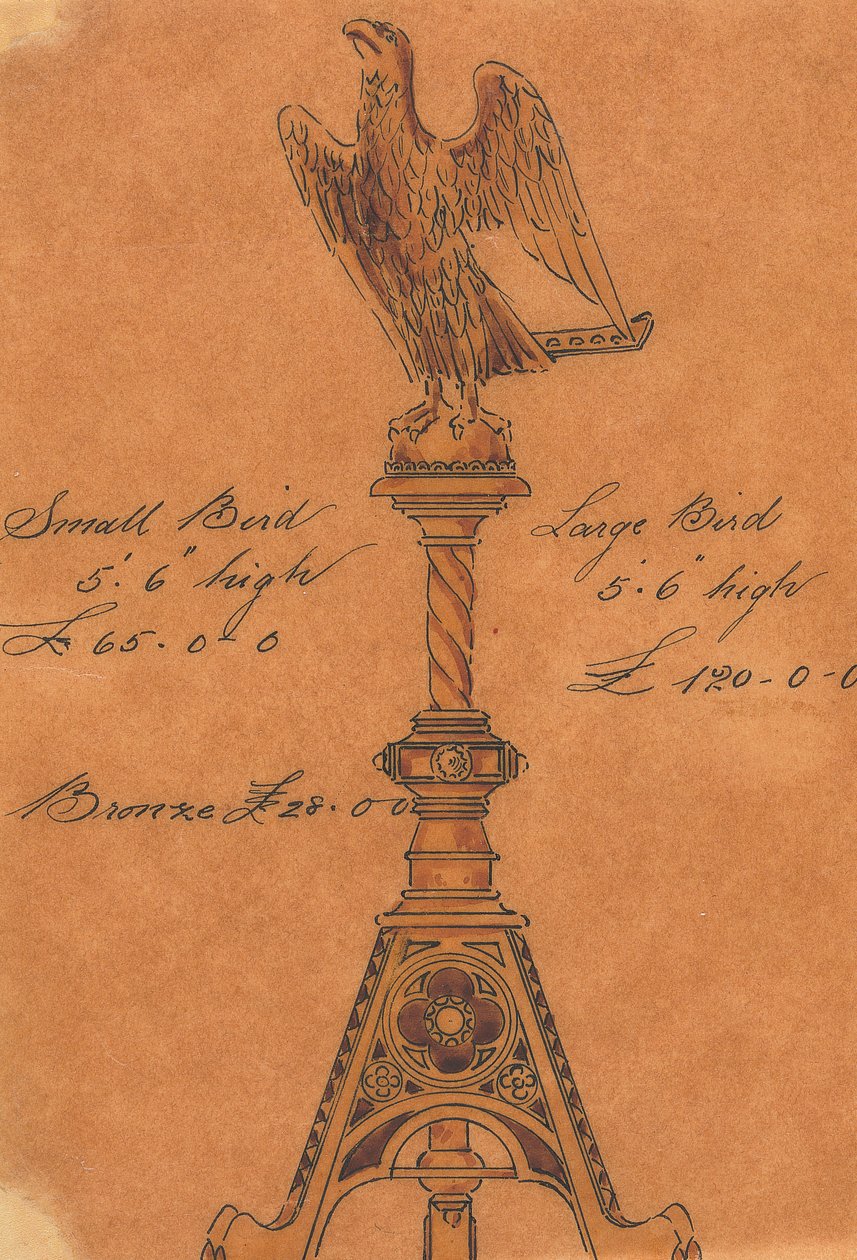 Small Bird
5'. 6" high
£ 65 - 0 - 0
Large Bird
5'. 6" high
£ 120 - 0 - 0
Bronze £28. 0 0